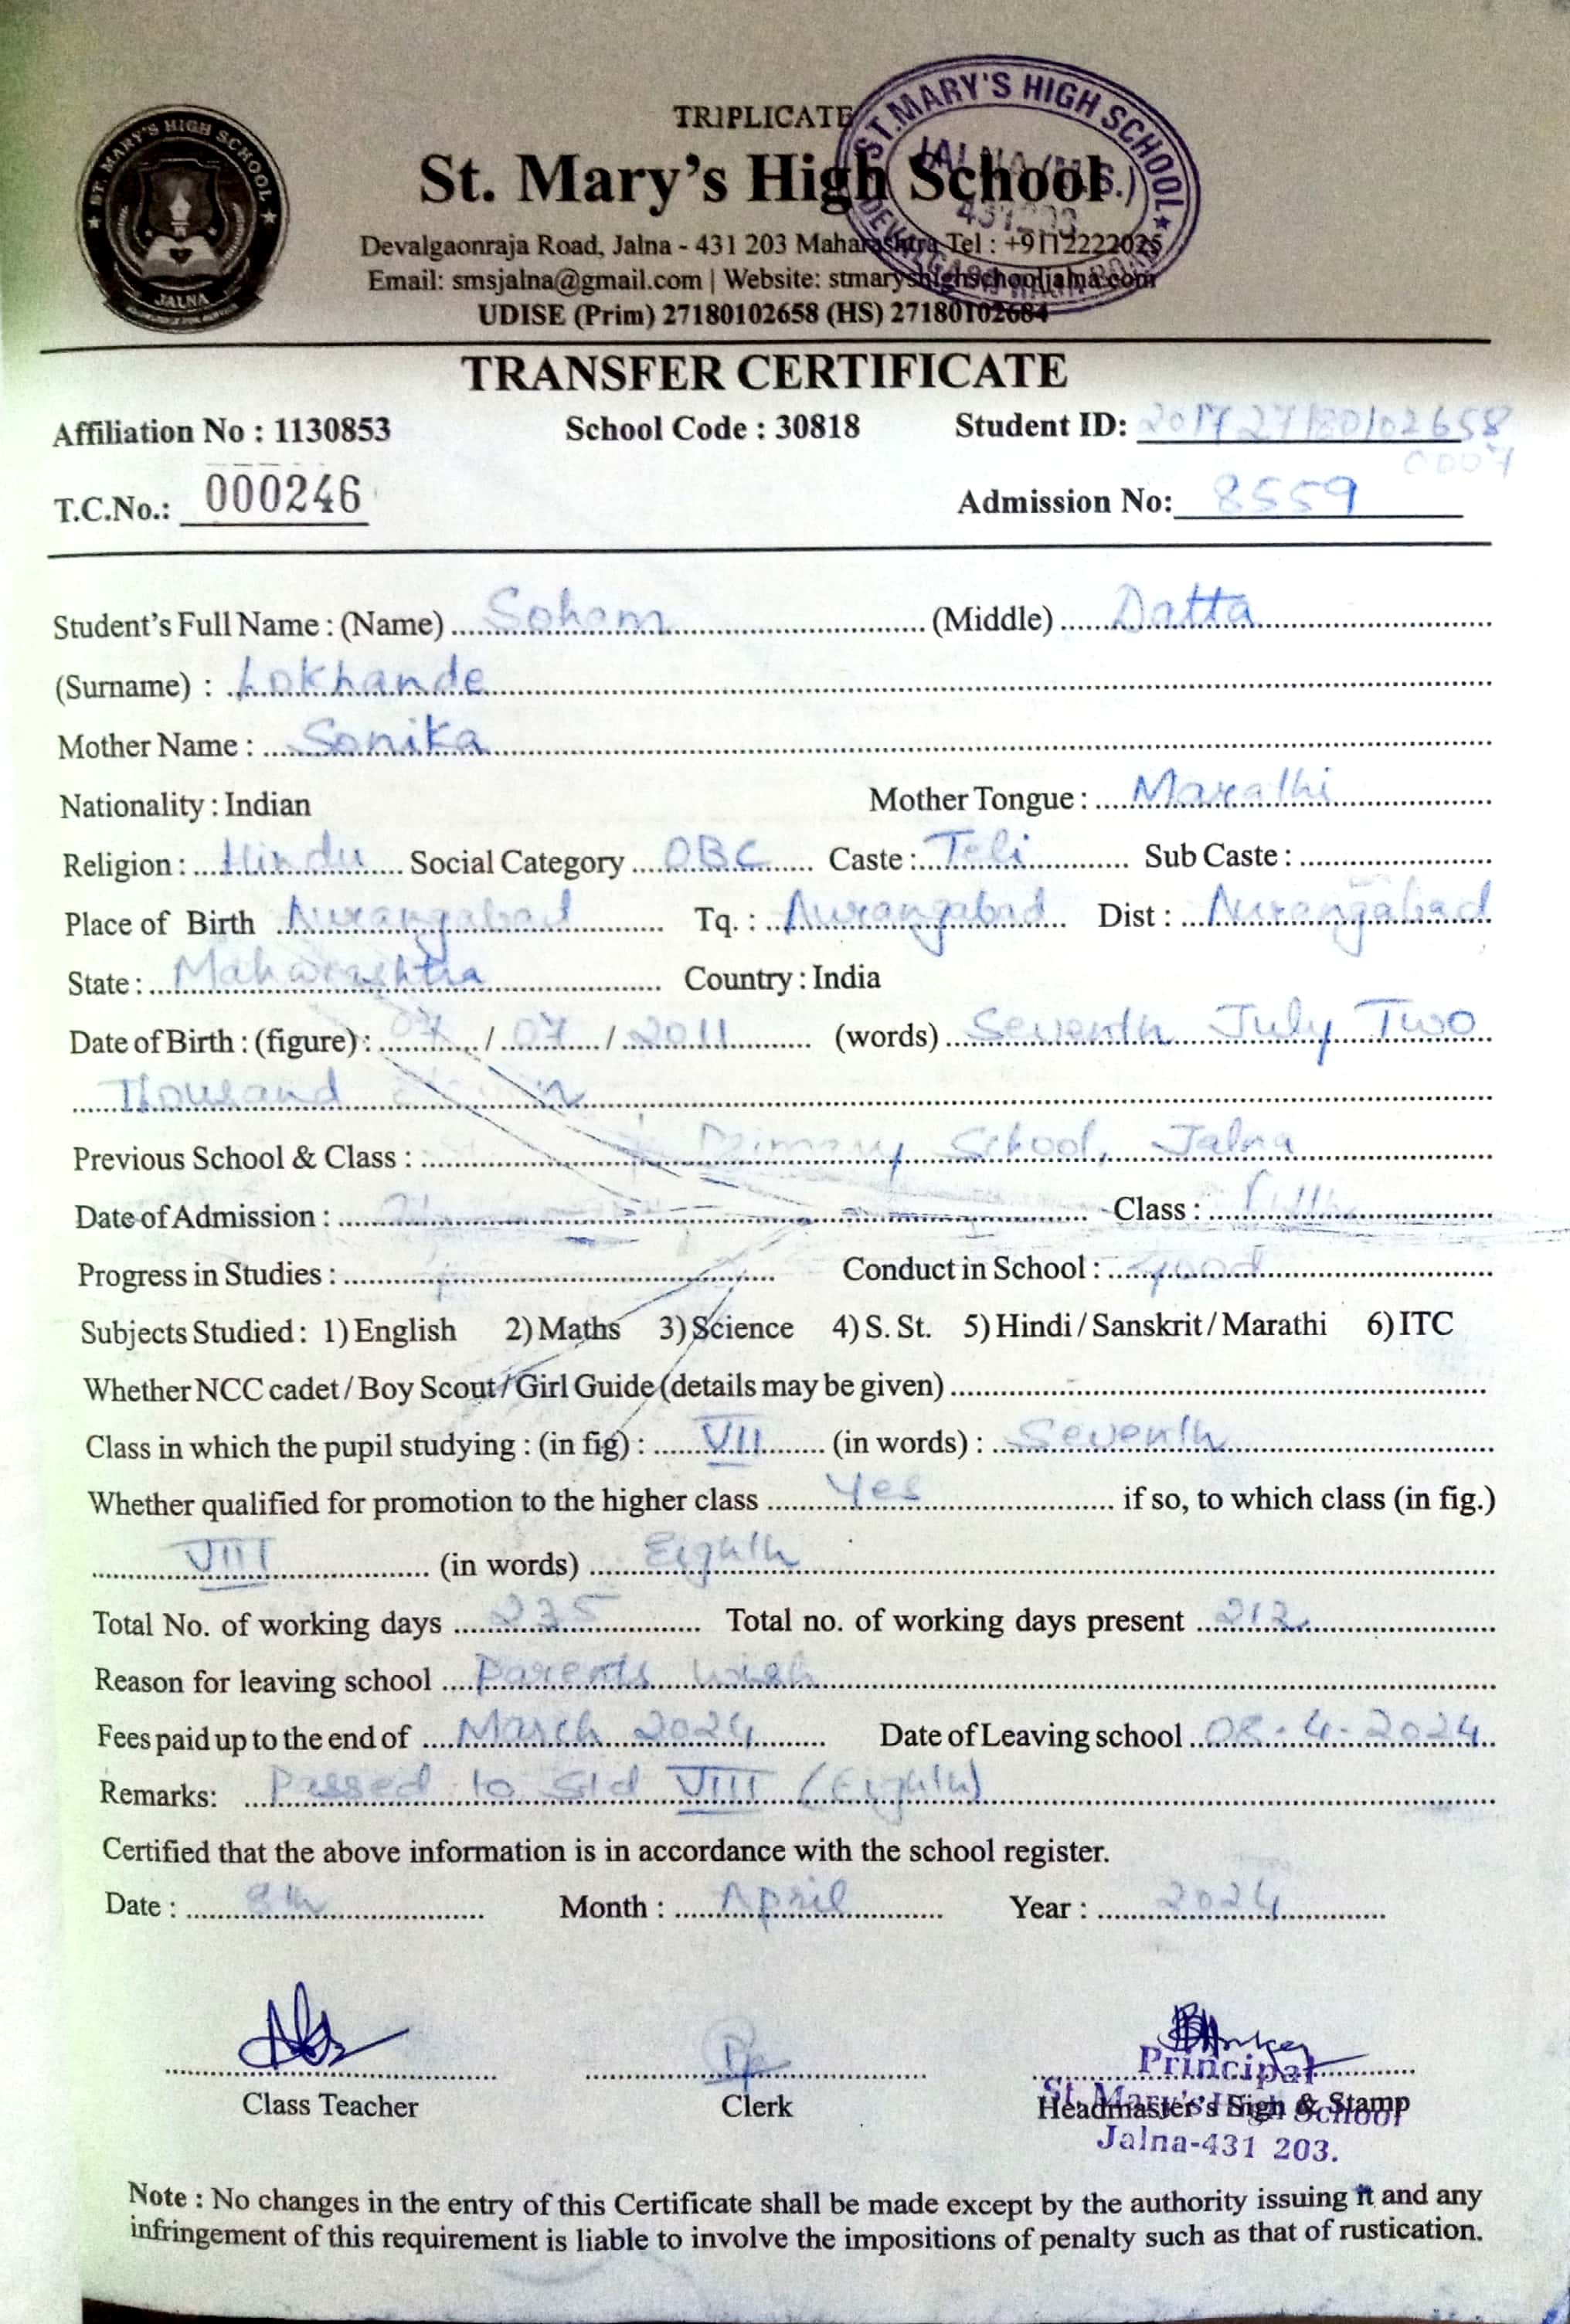 TRIPLICATE
St. Mary's High School
Devalgaonraja Road, Jalna - 431 203 Maharashtra Tel : +9112222025
Email: smsjalna@gmail.com | Website: stmaryshighschooljalna.com
UDISE (Prim) 27180102658 (HS) 27180102684
ST. MARY'S HIGH SCHOOL
JALNA
ST.MARY'S HIGH SCHOOL
JALNA (M.S.)
431203
TRANSFER CERTIFICATE
Affiliation No : 1130853 School Code : 30818 Student ID: 2017 27180102658
0007
T.C.No.: 000246 Admission No: 8559
Student's Full Name : (Name) Soham (Middle) Datta
(Surname) : Lokhande
Mother Name : Sonika
Nationality : Indian Mother Tongue : Marathi
Religion : Hindu Social Category OBC Caste : Teli Sub Caste :
Place of Birth Aurangabad Tq. : Aurangabad Dist : Aurangabad
State : Maharashtra Country : India
Date of Birth : (figure) : 07 / 07 / 2011 (words) Seventh July Two
Thousand
Previous School & Class : Primary School, Jalna
Date of Admission : Class :
Progress in Studies : Conduct in School : good
Subjects Studied : 1) English 2) Maths 3) Science 4) S. St. 5) Hindi / Sanskrit / Marathi 6) ITC
Whether NCC cadet / Boy Scout / Girl Guide (details may be given) -
Class in which the pupil studying : (in fig) : VII (in words) : Seventh
Whether qualified for promotion to the higher class Yes if so, to which class (in fig.)
VIII (in words) Eighth
Total No. of working days 235 Total no. of working days present 212
Reason for leaving school Parents wish
Fees paid up to the end of March 2024 Date of Leaving school 08-4-2024
Remarks: Passed to Std VIII (Eighth)
Certified that the above information is in accordance with the school register.
Date : 8th Month : April Year : 2024
Class Teacher Clerk Headmaster's Sign & Stamp
Principal
St. Mary's High School
Jalna-431 203.
Note : No changes in the entry of this Certificate shall be made except by the authority issuing it and any
infringement of this requirement is liable to involve the impositions of penalty such as that of rustication.